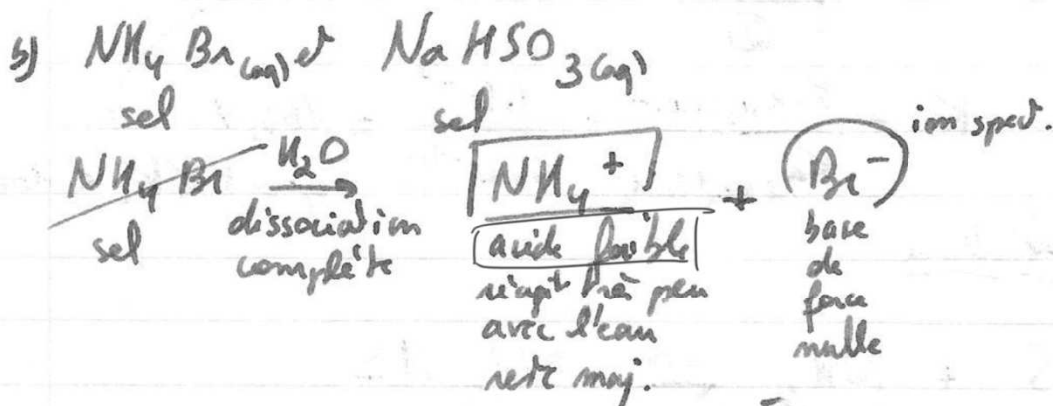 b) NH₄Br(aq) et NaHSO₃(aq)
sel sel
ion spect.
NH₄Br H₂O → NH₄⁺ + Br⁻
sel dissociation complète
acide faible
réagit très peu
avec l'eau
reste maj.
base
de
force
nulle